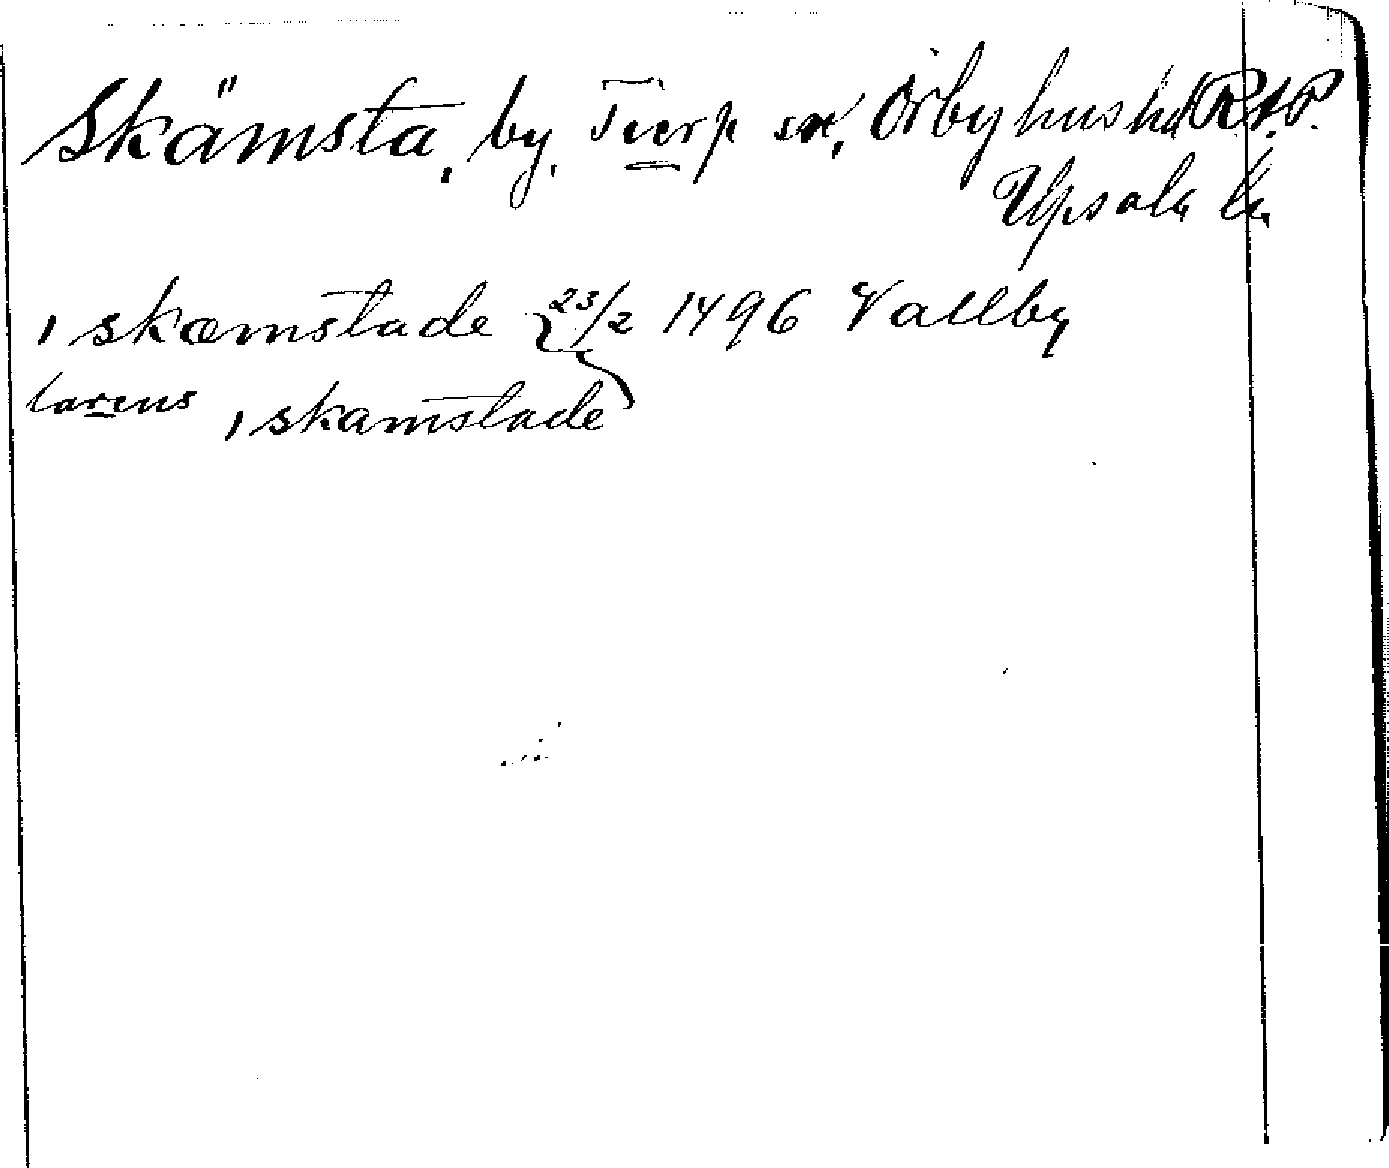 Skämsta, by, Tierp sn, Örbyhus hd R.A.P.
Upsala län
i skæmstade 23/2 1496 Vallby
larens i skamstade